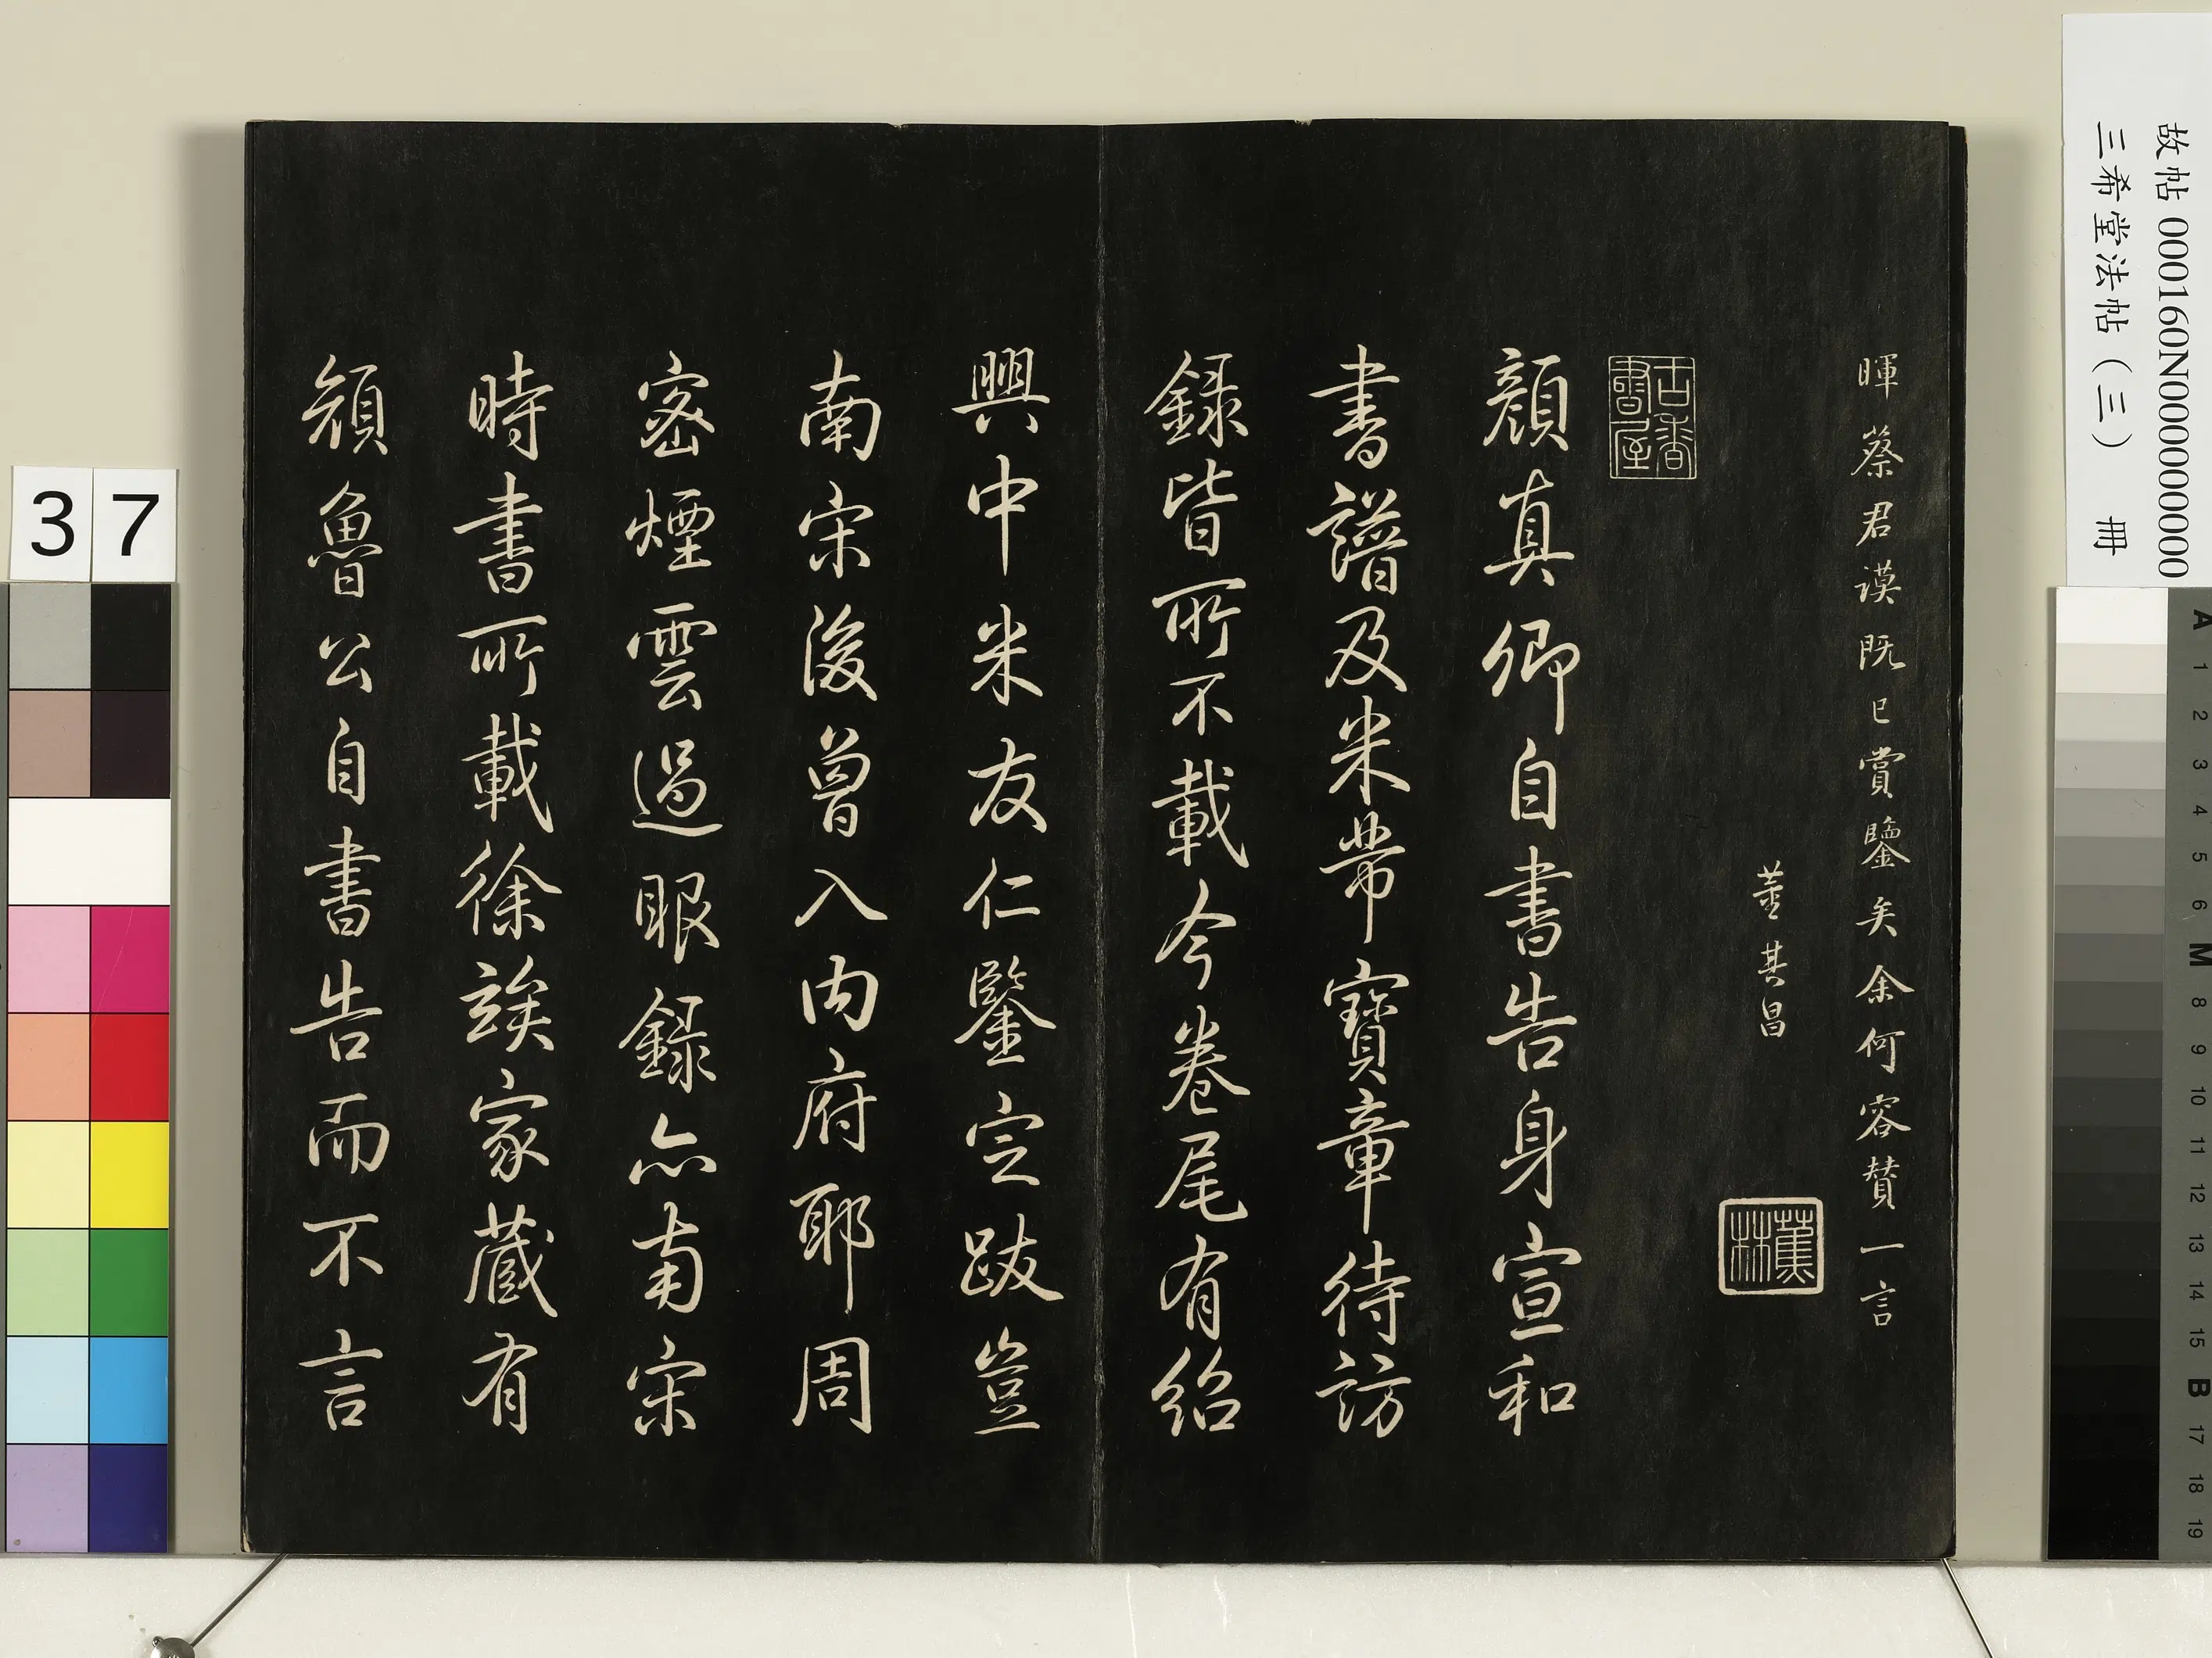 故帖 000160N000000000
三希堂法帖(三) 冊
暉蔡君謨既已賞鑒矣余何容賛一言
董其昌
蕉林
古香書屋
顔真卿自書告身宣和
書譜及米芾寶章待訪
録皆所不載今卷尾有紹
興中米友仁鑒定跋豈
南宋後曾入内府耶周
密煙雲過眼錄亦南宋
時書所載徐誒家藏有
顔魯公自書告而不言
37
A 1 2 3 4 5 6 M 8 9 10 11 12 13 14 15 B 17 18 19